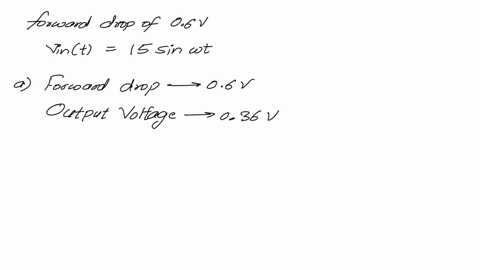 forward drop of 0.6 V
Vin(t) = 15 sin ωt
a) Forward drop → 0.6 V
Output Voltage → 0.36 V